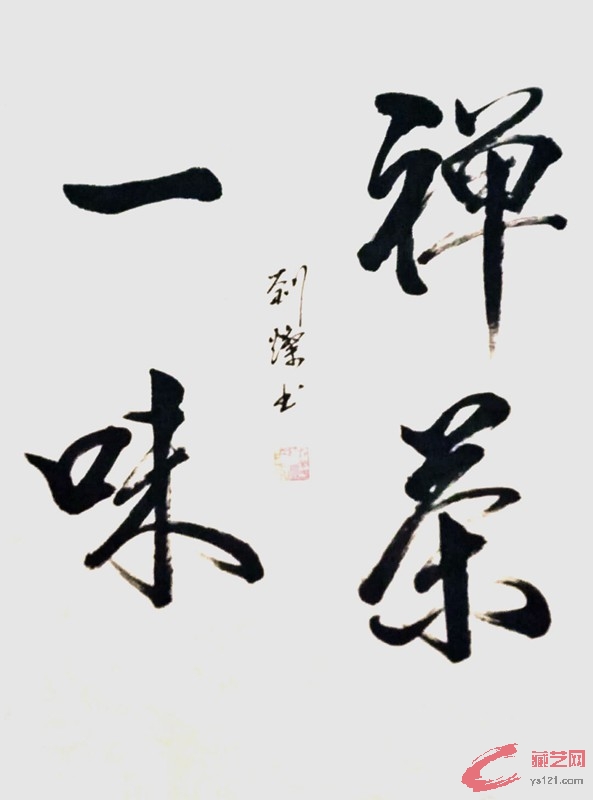 禅茶
一味
刘灿书
藏艺网
ys121.com